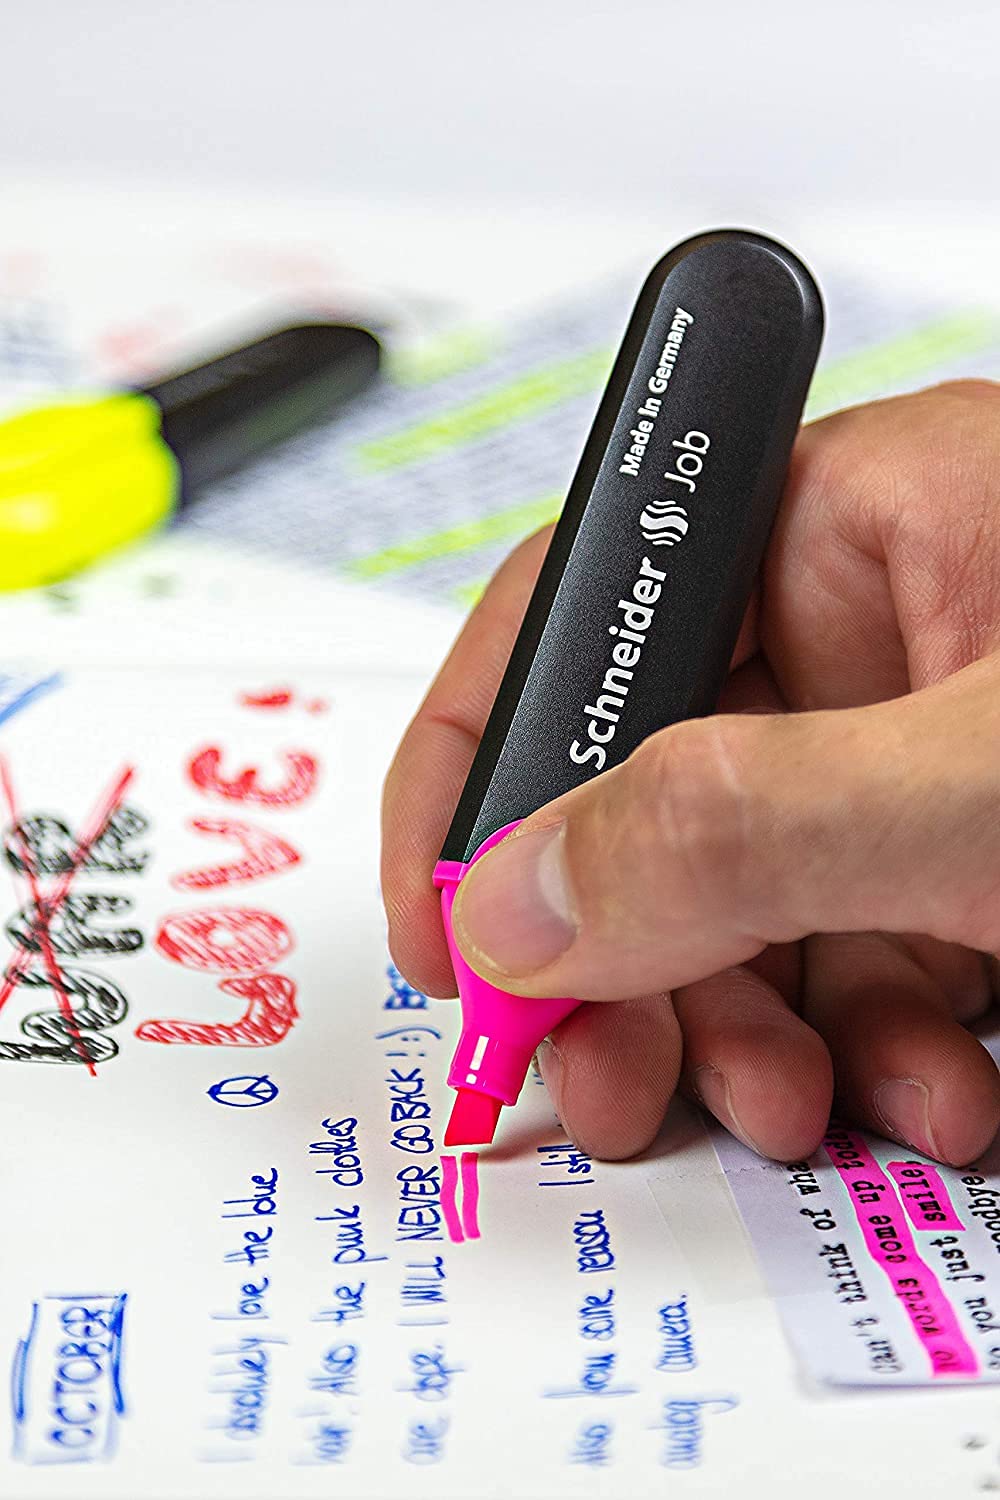 Made In Germany
Schneider Job
LOVE!
OCTOBER
I absolutely love the blue
hair! Also the punk clothes
are dope. I WILL NEVER GO BACK! :)
Also from some reason I still
analog camera.
Can't think of
No words come up today
you just smile,
goodbye.